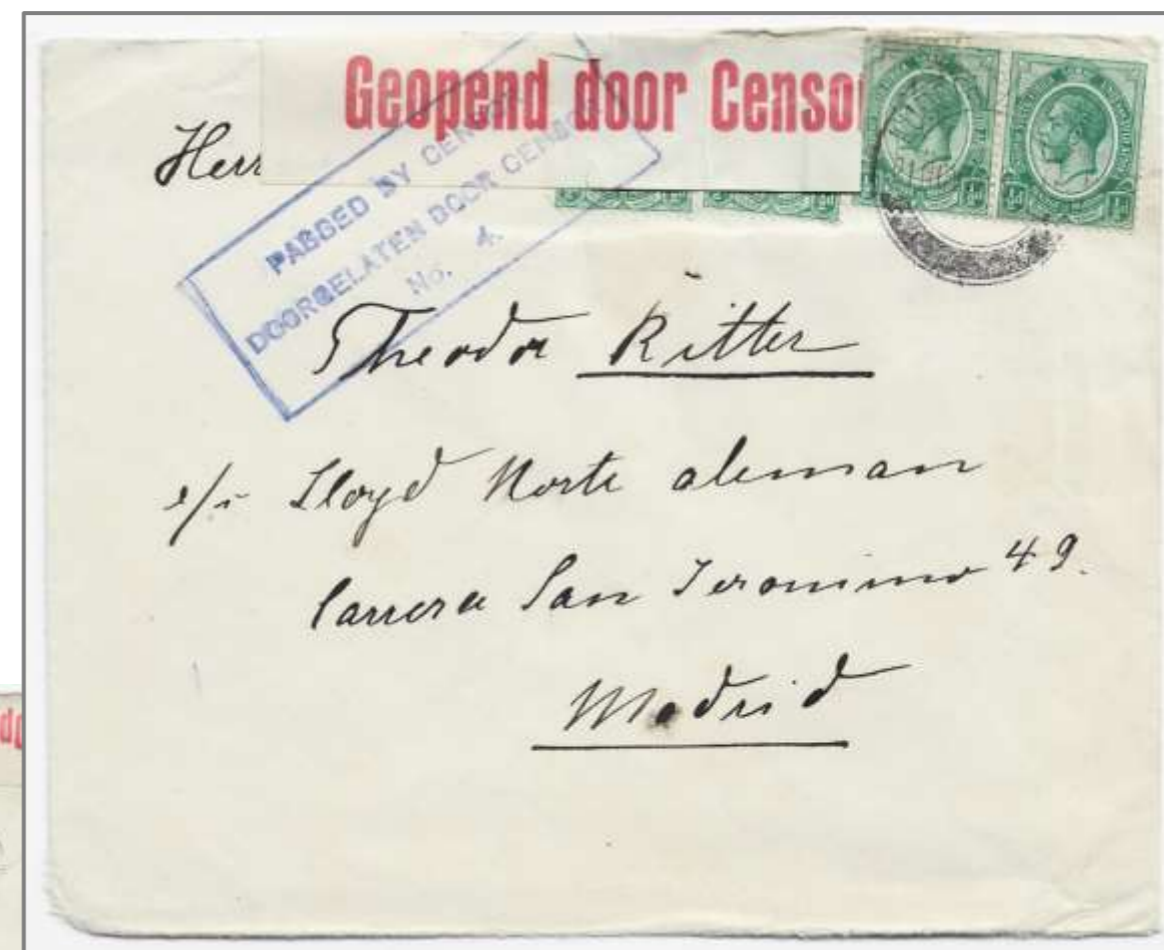 Geopend door Censo
Herr
PASSED BY CENSOR
DOORGELATEN DOOR CENSOR
No. 4.
Theodor Ritter
Lloyd Norte aleman
Carrera San Jeronimo 49.
Madrid